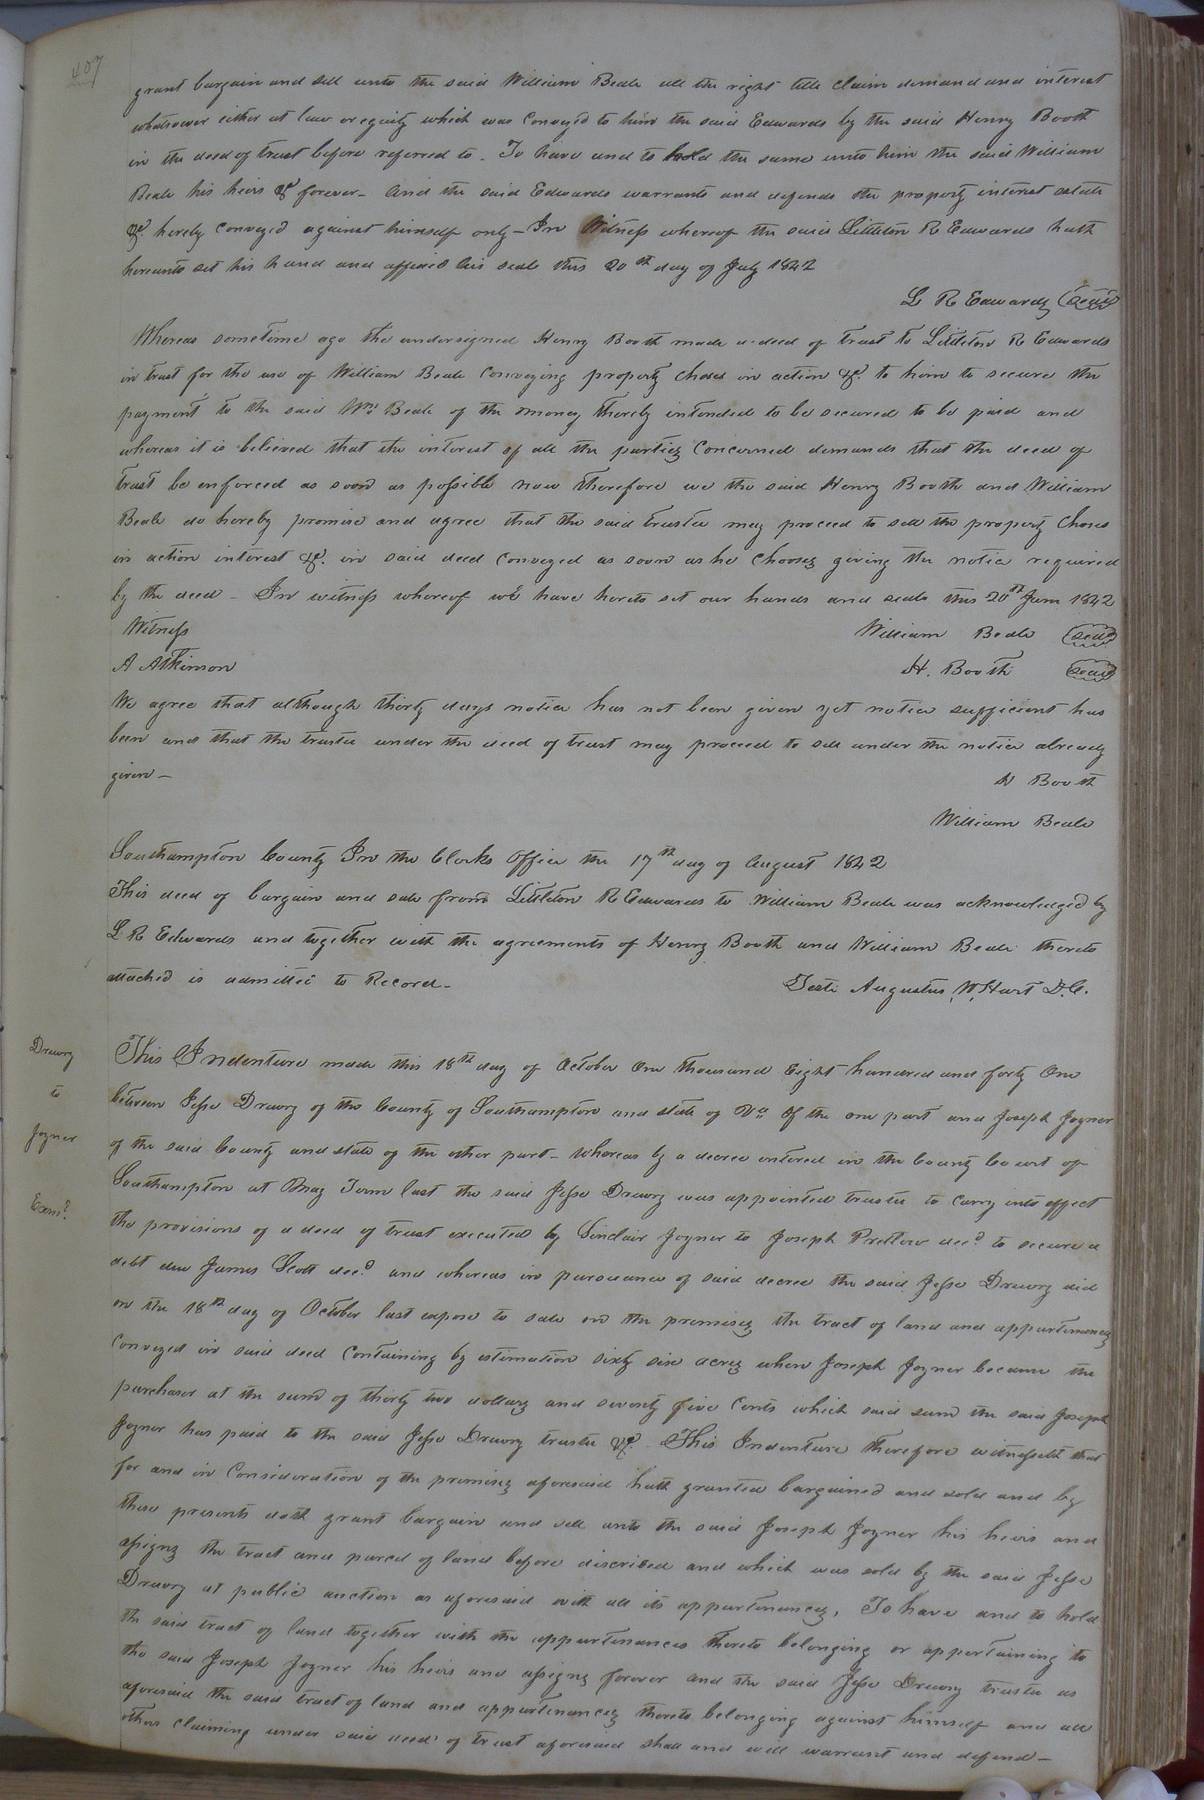 407
grant bargain and sell unto the said William Beale all the right title claim demand and interest
whatsoever either at law or equity which was Conveyed to him the said Edwards by the said Henry Booth
in the deed of trust before referred to. To have and to hold the same unto him the said William
Beale his heirs &c forever – And the said Edwards warrants and defends the property interest estate
&c. hereby Conveyed against himself only – In Witness whereof the said Littleton R Edwards hath
hereunto set his hand and affixed his seale this 20th day of July 1842
L R Edwards (Seal)
Whereas sometime ago the undersigned Henry Booth made a deed of trust to Littleton R Edwards
in trust for the use of William Beale Conveying property choses in action &c. to him to secure the
payment to the said Wm. Beale of the money thereby intended to be secured to be paid and
whereas it is believed that the interest of all the parties Concerned demands that the deed of
trust be enforced as soon as possible now therefore we the said Henry Booth and William
Beale do hereby promise and agree that the said trustee may proceed to sell the property choses
in action interest &c. in said deed Conveyed as soon as he chooses giving the notice required
by the deed – In witness whereof we have hereto set our hands and seals this 20th June 1842
Witness
William Beale (seal)
A Atkinson
H. Booth (seal)
We agree that although thirty days notice has not been given yet notice sufficient has
been and that the trustee under the deed of trust may proceed to sell under the notice already
given –
H Booth
William Beale
Southampton County In the Clerks Office the 17th day of August 1842
This deed of bargain and sale from Littleton R Edwards to William Beale was acknowledged by
L R Edwards and together with the agreements of Henry Booth and William Beale thereto
attached is admitted to Record –
Teste Augustus W. Hart D.C.
Drewry
to
Joyner
Examd.
This Indenture made this 18th day of October One thousand Eight hundred and forty One
between Jesse Drewry of the County of Southampton and state of Va of the one part and Joseph Joyner
of the said County and state of the other part – whereas by a decree entered in the County Court of
Southampton at May Term last the said Jesse Drewry was appointed trustee to carry into effect
the provisions of a deed of trust executed by Sinclair Joyner to Joseph Pretlow decd. to secure a
debt due James Scott decd. and whereas in pursuance of said decree the said Jesse Drewry did
on the 18th day of October last expose to sale on the premises the tract of land and appurtenances
Conveyed in said deed Containing by estimation sixty six acres when Joseph Joyner became the
purchaser at the sum of thirty two dollars and seventy five Cents which said sum the said Joseph
Joyner has paid to the said Jesse Drewry trustee &c. This Indenture therefore witnesseth that
for and in Consideration of the premises aforesaid hath granted bargained and sold and by
these presents doth grant bargain and sell unto the said Joseph Joyner his heirs and
assigns the tract and parcel of land before discribed and which was sold by the said Jesse
Drewry at public auction as aforesaid with all its appurtenances, To have and to hold
the said tract of land together with the appurtenances thereto belonging or appertaining to
the said Joseph Joyner his heirs and assigns forever and the said Jesse Drewry trustee as
aforesaid the said tract of land and appurtenances thereto belonging against himself and all
others claiming under said deed of trust aforesaid shall and will warrant and defend –